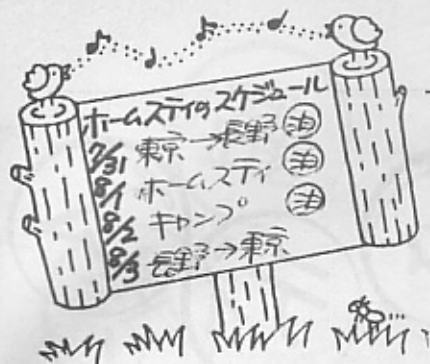 ホームスティのスケジュール
7/31 東京→長野 泊
8/1 ホームスティ 泊
8/2 キャンプ 泊
8/3 長野→東京